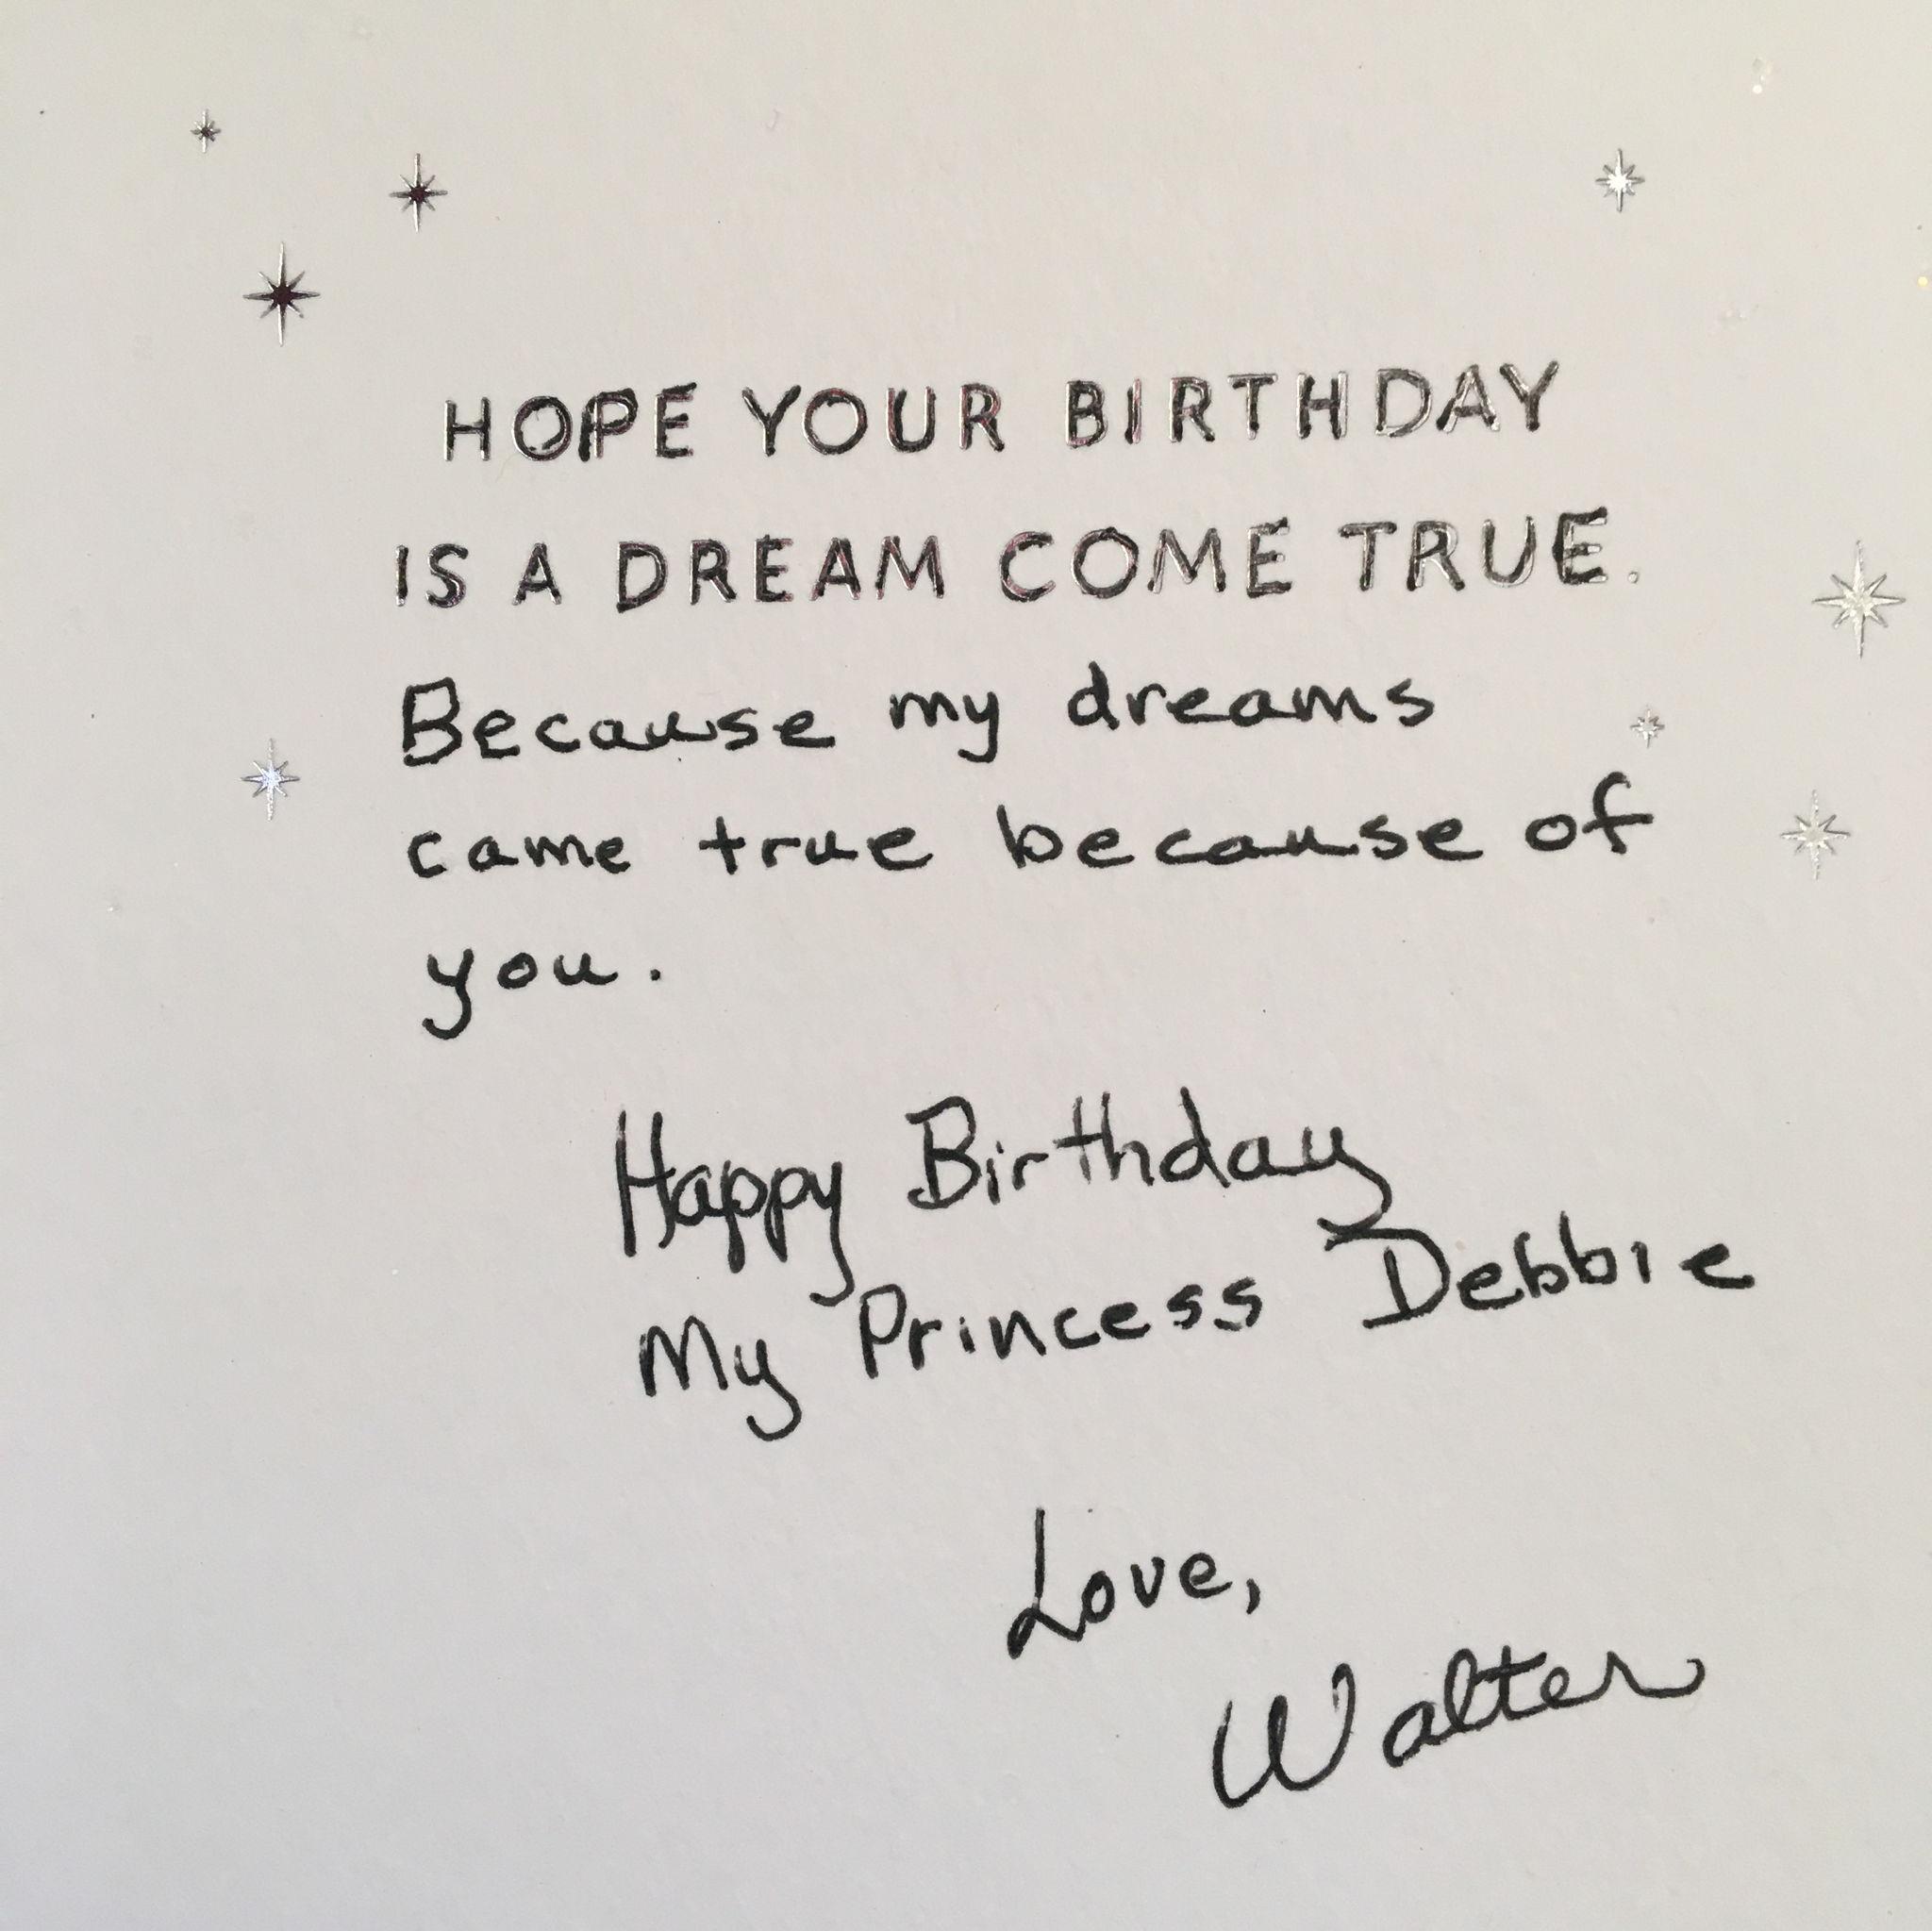 HOPE YOUR BIRTHDAY
IS A DREAM COME TRUE.
Because my dreams
came true because of
you.
Happy Birthday
My Princess Debbie
Love,
Walter